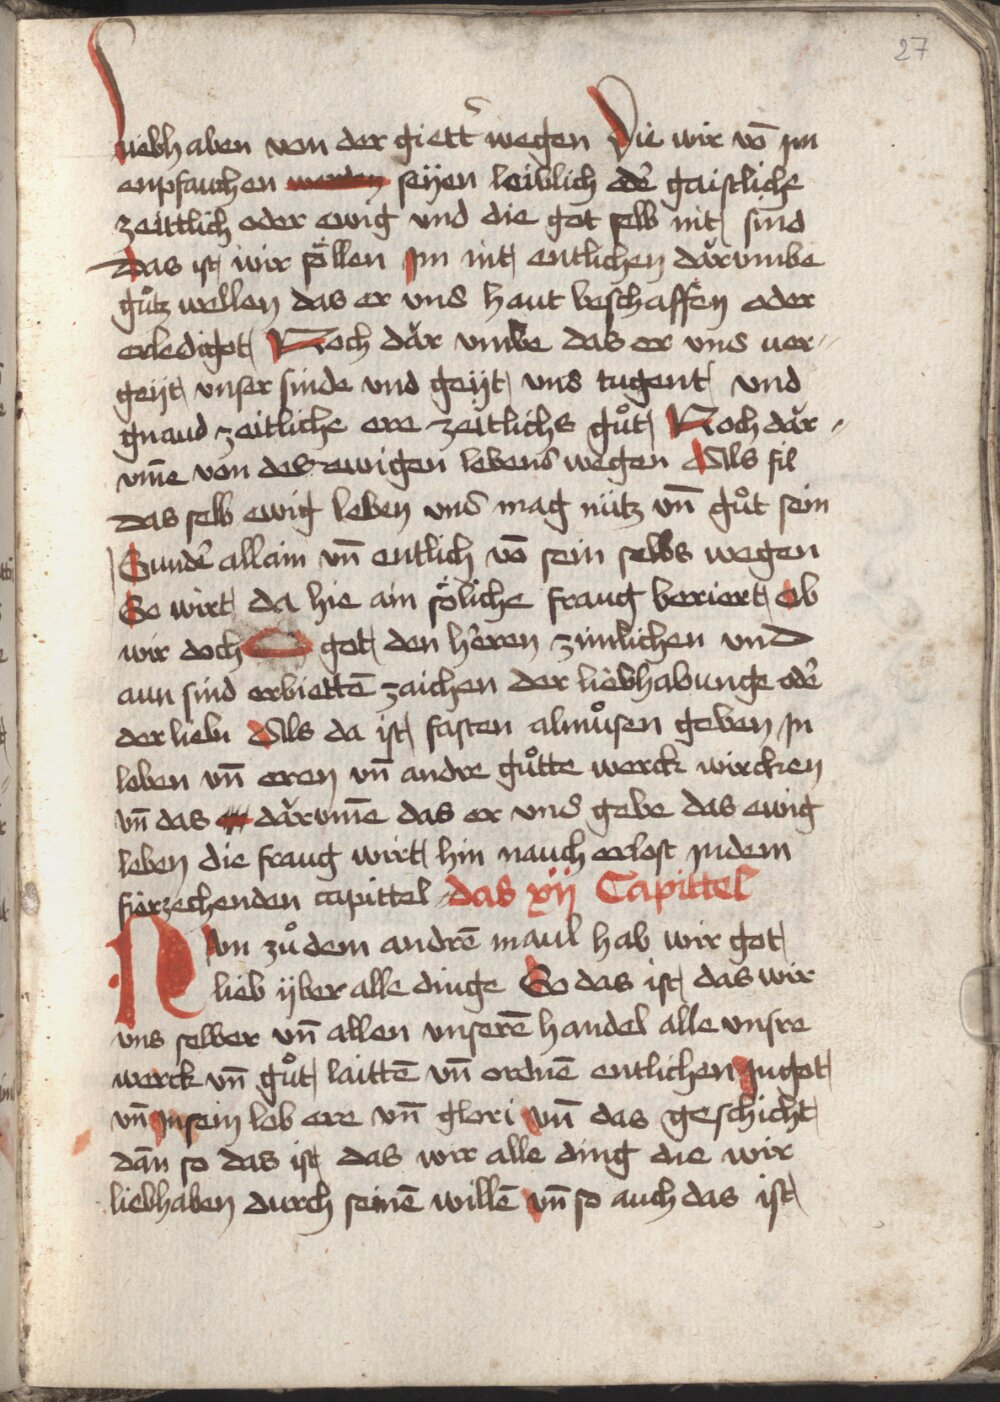 27
liebhaben von der giett wegen Die wir vō im
enpfauchen seÿen leiblich odē gaistlichs
zeittlich oder ewig vnd die got selb nit sind
das ist wir söllen Im nit entlichen dăr vmbe
gůtz wellen das er vns haut beschaffen oder
erledigot Noch dăr vmbe das er vns ver-
geÿt vnser sinde vnd geÿt vns tugent vnd
gnaud zeitliche ere zeitlichs gůt Noch dăr-
vm̄e von des ewigen lebens wegen Als fil
das selb ewig leben vns mag nütz vn̄ gůt sein
Sundē allain vn̄ entlich vō sein selbs wegen
So wirt da hie ain söliche fraug beriert Ob
wir doch got den heren zimlichen vnd
aun sind erbiettē zaichen der liebhabunge odē
der lieby Als da ist fasten almůsen geben In
loben vn̄ eren vn̄ andre gůtte werck wircken
vn̄ das dăr vm̄e das er vns gebe das ewig
leben die fraug wirt hin nauch erlost Indem
fierzechenden capittel das xij Capittel
Nvn zů dem andrē maul hab wir got
lieb ÿber alle dinge So das ist das wir
vns selber vn̄ allen vnserē handel alle vnsre
werck vn̄ gůt laittē vn̄ ordnē entlichen In got
vn̄ In sein lob ere vn̄ glori vn̄ das geschicht
dan̄ so das ist das wir alle ding die wir
liebhaben durch seinē willē vn̄ so auch das ist